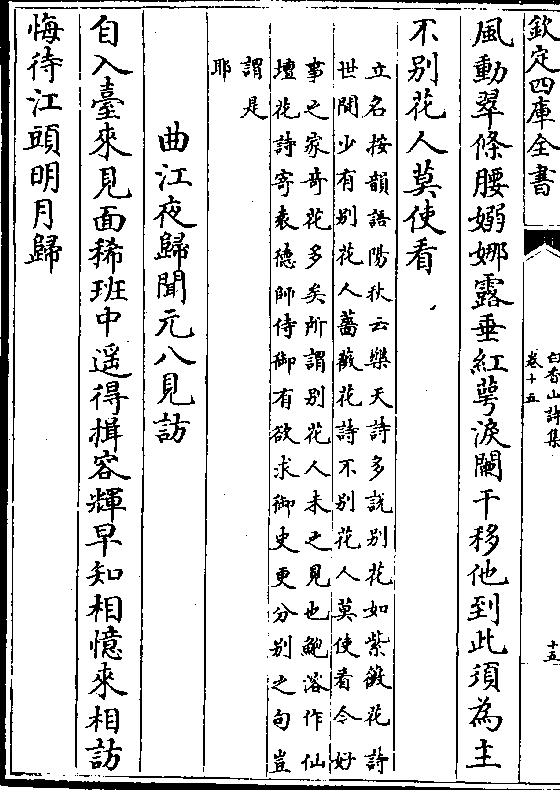 欽定四庫全書
白香山詩集
卷十五
十五
風動翠條腰嫋娜露垂紅萼淚闌干移他到此須為主
不别花人莫使看
立名按韻語陽秋云樂天詩多説别花如紫薇花詩
世間少有别花人薔薇花詩不别花人莫使看今好
事之家竒花多矣所謂别花人未之見也鮑溶作仙
壇花詩寄袁德師侍御有欲求御史更分别之句豈
謂是
耶
曲江夜歸聞元八見訪
自入臺來見面稀班中遥得揖容輝早知相憶來相訪
悔待江頭明月歸